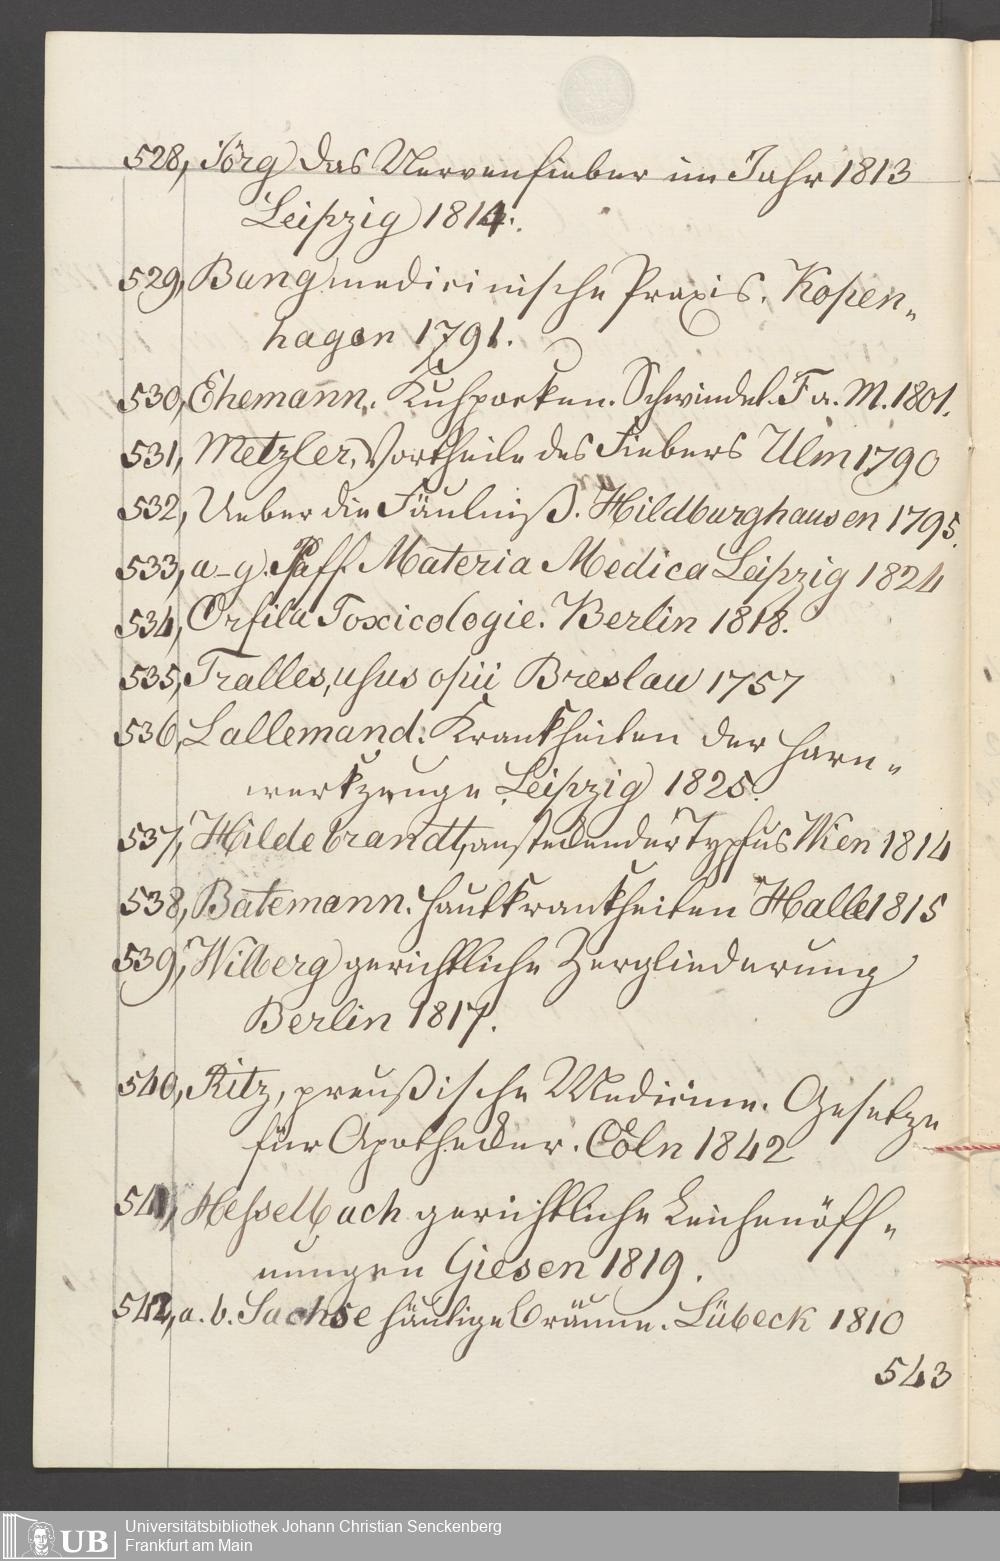 528, Jörg das Nervenfieber im Jahr 1813
Leipzig 1814.
529, Bang medicinische Praxis. Kopen„
hagen 1791.
530, Ehemann. Kuhpocken. Schwindel. F a. M. 1801.
531, Metzler, Vortheile des Fiebers Ulm 1790
532, Ueber die Fäulniß. Hildburghausen 1795.
533, a-g. Paff Materia Medica Leipzig 1824
534, Orfila Toxicologie. Berlin 1818.
535, Tralles, usus opii Breslau 1757
536, Lallemand. Krankheiten der Harn„
werkzeuge Leipzig 1825.
537, Hildebrandt, ansteckender Typhus Wien 1814
538, Batemann. Hautkrankheiten Halle 1815
539, Wilberg gerichtliche Zergliederung
Berlin 1817.
540, Ritz, preußische Medicin. Gesetze
für Apothecker. Cöln 1842
541, Hesselbach gerichtliche Leichenöff„
nungen Giesen 1819.
542, a. b. Sachse häutige Bräune. Lübeck 1810
543
UB
Universitätsbibliothek Johann Christian Senckenberg
Frankfurt am Main